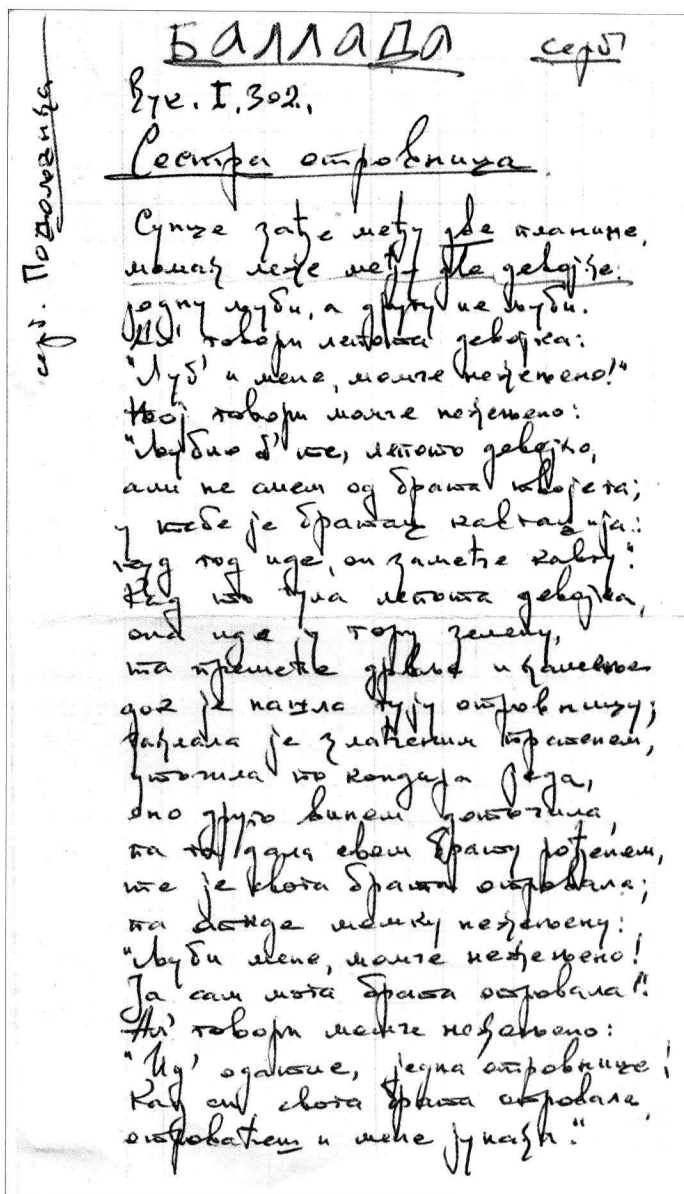 БАЛЛАДА серб
Вук. I. 302.
серб. Подолянка
Сестра отровница
Сунце зађе међу две планине,
момак леже међ' две девојке:
једну љуби, а другу не љуби.
Ал' говори лепота девојка:
"Љуб' и мене, момче нежењено!"
Њој говори момче нежењено:
"Љубио б' те, лепото девојко,
али не смем од брата твојега;
у тебе је братац кавгаџија:
куд год иде, он замеће кавгу."
Кад то чула лепота девојка,
она иде у гору зелену,
та премеће дрвље и камење
док је нашла љуту отровницу;
заклала је златеним прстеном,
уточила по кондира једа,
оно друго вином доточила,
па га дала свом брату рођеном,
те је свога брата отровала;
па отиде момку нежењену:
"Љуби мене, момче нежењено!
Ја сам мога брата отровала!"
Ал' говори момче нежењено:
"Ид' одатле, једна отровнице!
Кад си свога брата отровала,
отроваћеш и мене јунака."